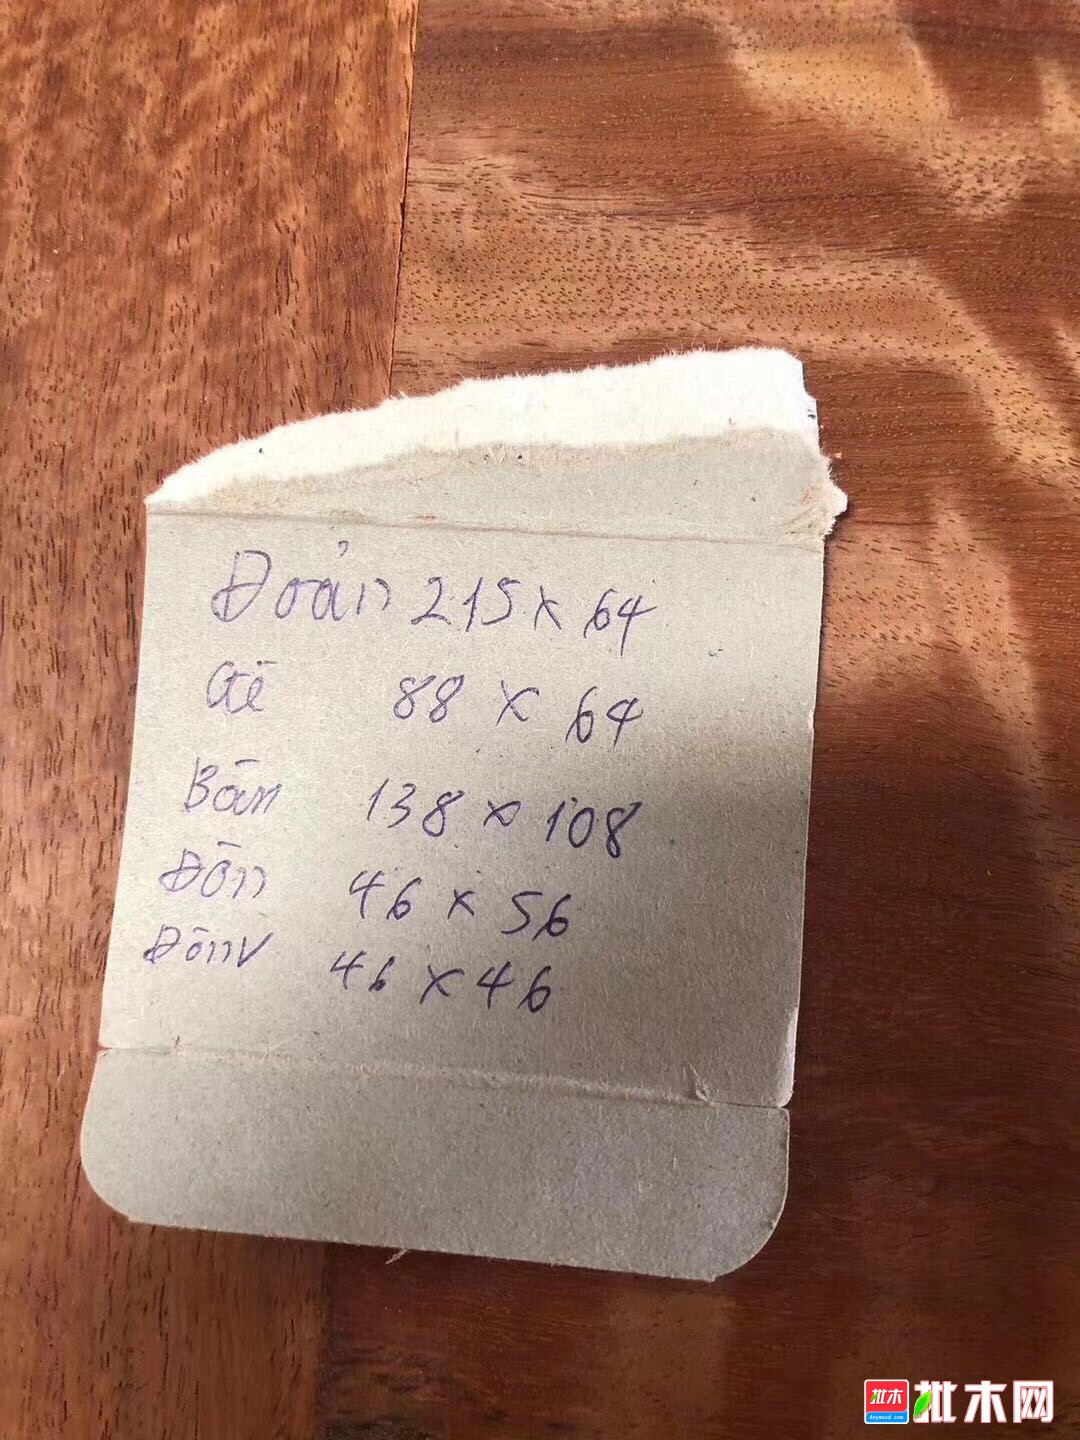 Đoản 215 x 64
Ghế 88 x 64
Bàn 138 x 108
Đôn 46 x 56
Đônv 46 x 46
批木
Anywood.com
批木网